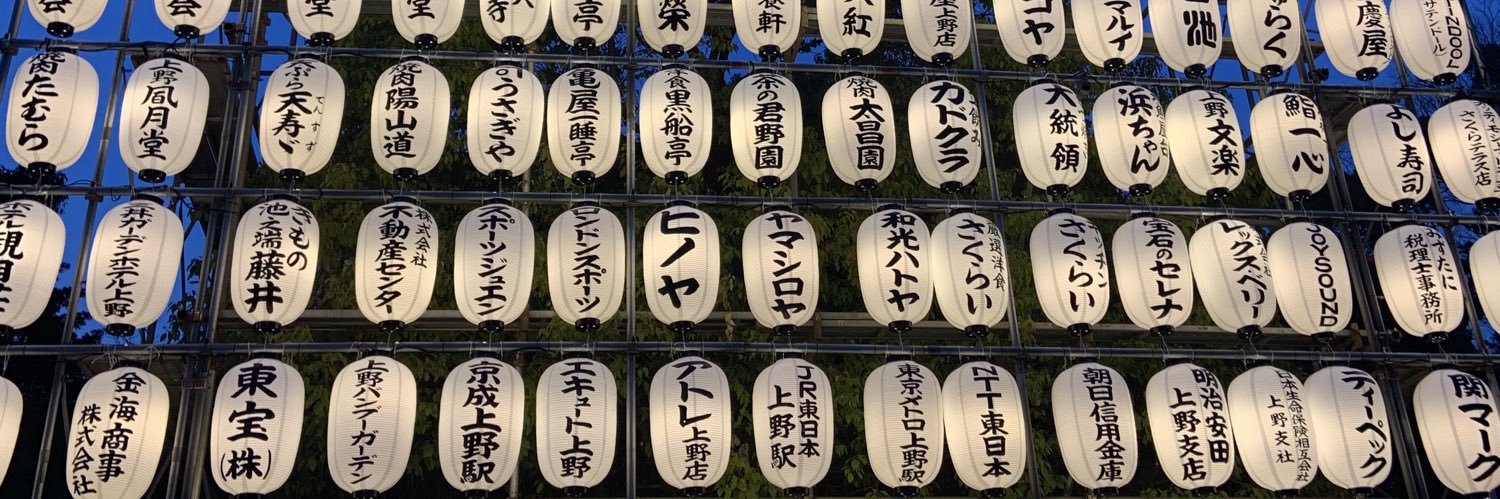 慶屋
焼肉たむら
上野凮月堂
天寿ゞ
てんすず
焼肉陽山道
うさぎや
亀屋一睡亭
黒船亭
茶の君野園
焼肉太昌園
カドクラ
大統領
浜ちゃん
上野文楽
鮨一心
よし寿司
さくらテラス店
ホテル上野
きもの
池之端藤井
株式会社
不動産センター
スポーツジュエン
ロンドンスポーツ
ヒノヤ
ヤマシロヤ
和光ハトヤ
厳選洋食
さくらい
キッチン
さくらい
宝石のセレナ
レックスベリー
JOYSOUND
税理士事務所
金海商事
株式会社
東宝
(株)
上野バニーガーデン
京成上野駅
エキュート上野
アトレ上野店
JR東日本
上野駅
東京メトロ上野駅
NTT東日本
朝日信用金庫
明治安田
上野支店
日本生命保険相互会社
上野支社
ティーペック
関マーク